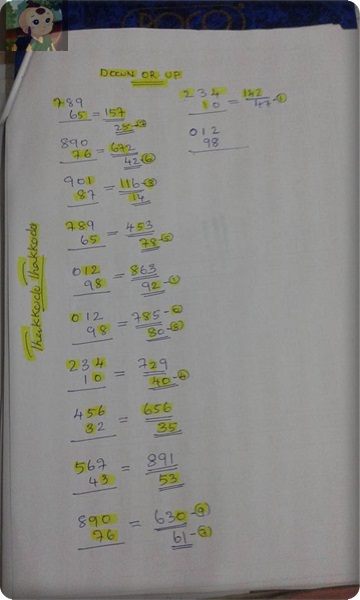 DOWN OR UP
789
65 = 157
25-7
890
76 = 672
42-6
901
87 = 116-3
14
789
65 = 453
78-5
012
98 = 863
92-1
012
98 = 785-0
80-8
234
10 = 729
40-4
456
32 = 656
35
567
43 = 891
53
890
76 = 630-9
61-7
234
10 = 142
47-1
012
98
Thakkodo Thakkodo